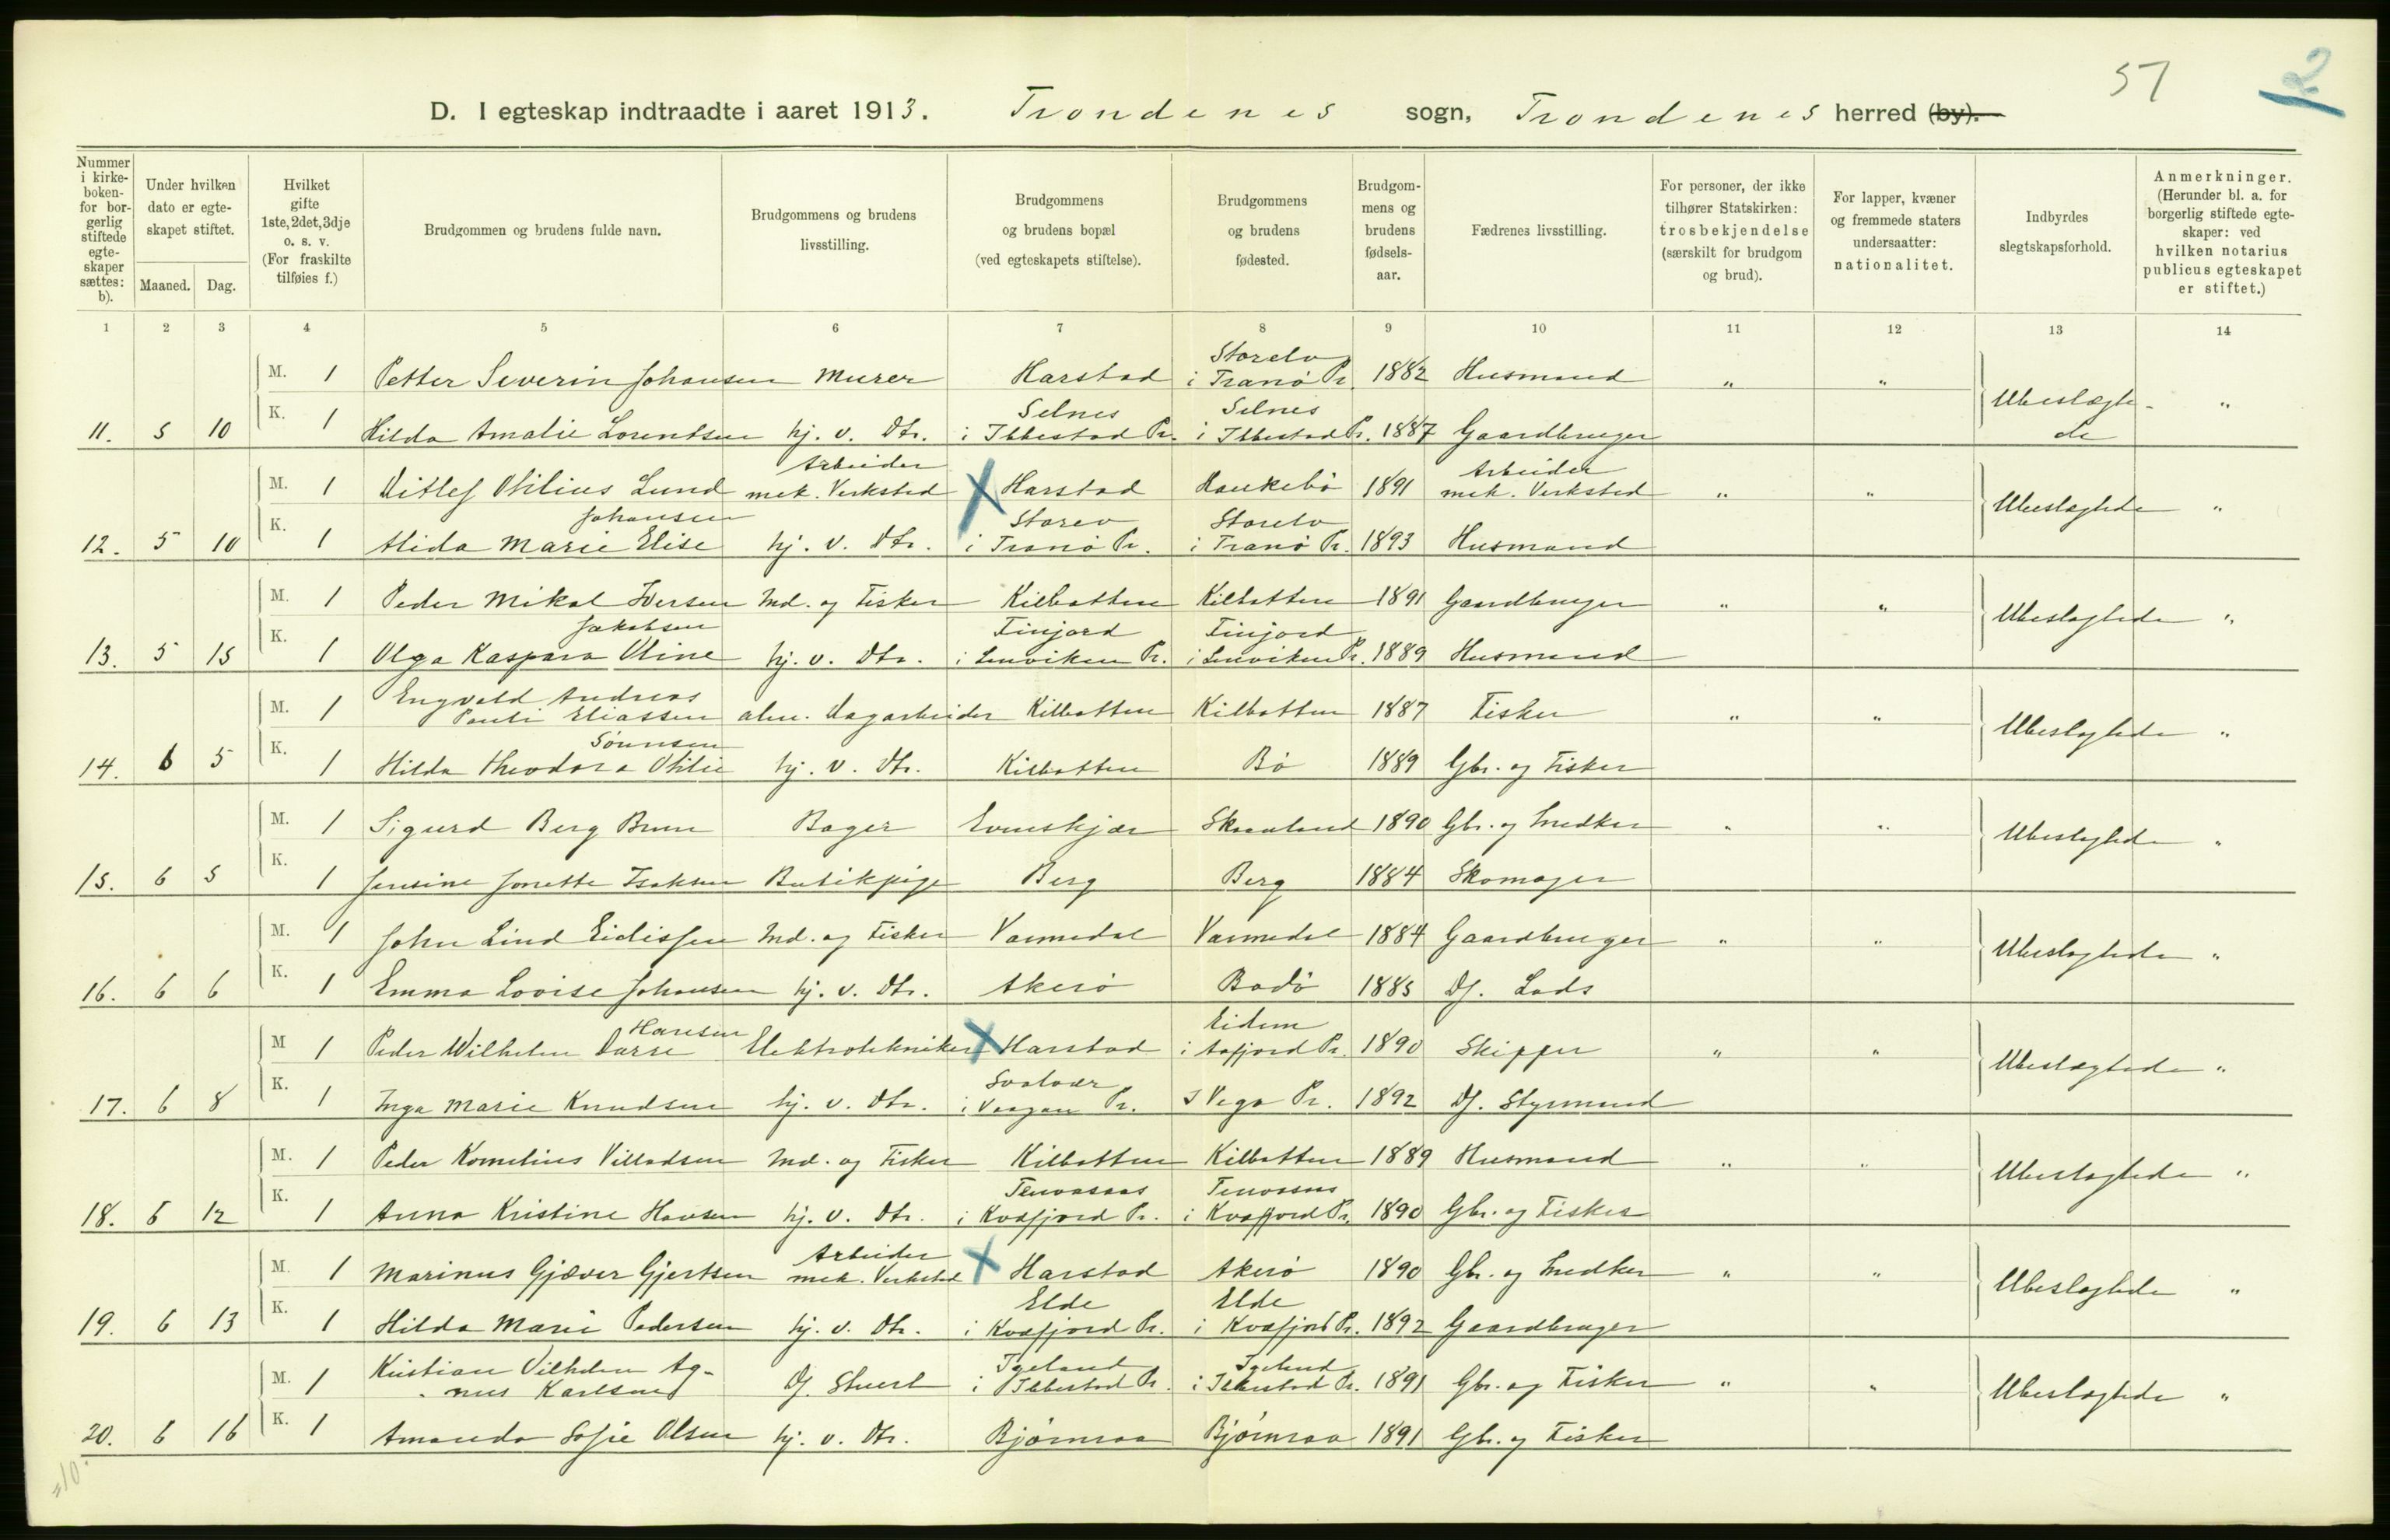 57
2
D. I egteskap indtraadte i aaret 1913. Trondenes sogn, Trondenes herred (by).
Nummer i kirkeboken for borgerlig stiftede egteskaper sættes: b).
Under hvilken dato er egteskapet stiftet.
Maaned. Dag.
Hvilket gifte 1ste, 2det, 3dje o. s. v. (For fraskilte tilføies f.)
Brudgommen og brudens fulde navn.
Brudgommens og brudens livsstilling.
Brudgommens og brudens bopæl (ved egteskapets stiftelse).
Brudgommens og brudens fødested.
Brudgommens og brudens fødselsaar.
Fædrenes livsstilling.
For personer, der ikke tilhører Statskirken: trosbekjendelse (særskilt for brudgom og brud).
For lapper, kvæner og fremmede staters undersaatter: nationalitet.
Indbyrdes slegtskapsforhold.
Anmerkninger. (Herunder bl. a. for borgerlig stiftede egteskaper: ved hvilken notarius publicus egteskapet er stiftet.)
1 2 3 4 5 6 7 8 9 10 11 12 13 14
M. 1 Petter Severin Johansen Murer Harstad Storelv i Tranö Pr. 1882 Husmand " " Ubeslægtede "
11. 5 10 K. 1 Hilda Amalie Lorentsen hj. v. Dtr. Selnes i Ibbestad Pr. Selnes i Ibbestad Pr. 1887 Gaardbruger
M. 1 Ditlef Otilius Lund Arbeider mek. Verksted X Harstad Haukebö 1891 Arbeider mek. Verksted " " Ubeslægtede "
12. 5 10 K. 1 Alida Marie Elise Johansen hj. v. Dtr. Storev i Tranö Pr. Storelv i Tranö Pr. 1893 Husmand
M. 1 Peder Mikal Iversen Ind. og Fisker Kilbotten Kilbotten 1891 Gaardbruger " " Ubeslægtede "
13. 5 15 K. 1 Olga Kaspara Oline Jakobsen hj. v. Dtr. Finjord i Lenviken Pr. Finjord i Lenviken Pr. 1889 Husmand
M. 1 Engvald Andreas Pauli Eliassen alm. Dagarbeider Kilbotten Kilbotten 1887 Fisker " " Ubeslægtede "
14. 6 5 K. 1 Hilda Theodora Otilie Sörensen hj. v. Dtr. Kilbotten Bö 1889 Gbr. og Fisker
M. 1 Sigurd Berg Brun Bager Evenskjær Skaanland 1890 Gbr. og Snedker " " Ubeslægtede "
15. 6 5 K. 1 Jensine Jonette Isaksen Butikpige Berg Berg 1884 Skomager
M. 1 John Lind Eidissen Ind. og Fisker Vannedal Vannedal 1884 Gaardbruger " " Ubeslægtede "
16. 6 6 K. 1 Emma Lovise Johansen hj. v. Dtr. Akerö Bodö 1885 Df. Lods
M 1 Peder Wilhelm Darse Hansen Elektrotekniker X Harstad Eidem i Aafjord Pr. 1890 Skipper " " Ubeslægtede "
17. 6 8 K. 1 Inga Marie Knudsen hj. v. Dtr. Svolvær i Vaagan Pr. I Vega Pr. 1892 Df. Styrmand
M. 1 Peder Kornelius Villadsen Ind. og Fisker Kilbotten Kilbotten 1889 Husmand " " Ubeslægtede "
18. 6 12 K. 1 Anna Kristine Hansen hj. v. Dtr. i Kvæfjord Pr. i Kvæfjord Pr. 1890 Gbr. og Fisker
M. 1 Marinus Gjæver Gjertsen Arbeider mek. Verksted X Harstad Akerö 1890 Gbr. og Snedker " " Ubeslægtede "
19. 6 13 K. 1 Hilda Marie Pedersen hj. v. Dtr. Elde i Kvæfjord Pr. Elde i Kvæfjord Pr. 1892 Gaardbruger
M. 1 Kristian Vilhelm Agnus Karlsen Igeland i Ibbestad Pr. Igeland i Ibbestad Pr. 1891 Gbr. og Fisker " " Ubeslægtede "
20. 6 16 K. 1 Amanda Sofie Olsen hj. v. Dtr. Bjørnraa Bjørnraa 1891 Gbr. og Fisker
"10.